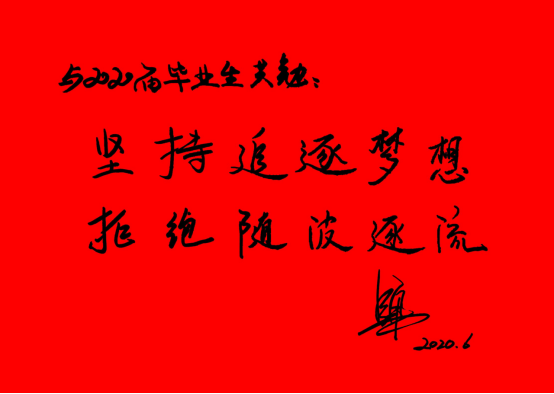 与2020届毕业生共勉：
坚持追逐梦想
拒绝随波逐流
2020.6